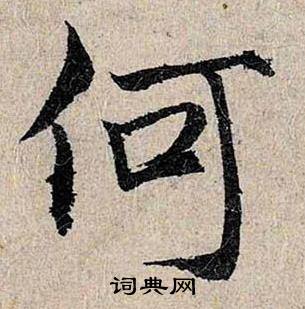 何
词典网